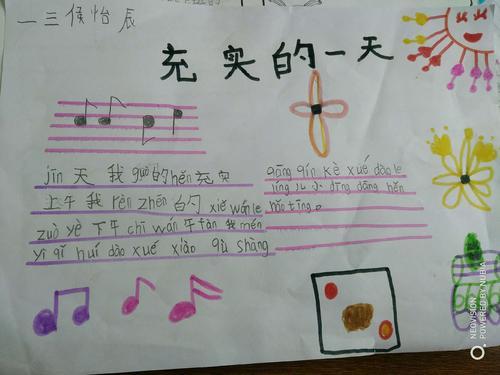 一三侯怡辰
充实的一天
jīn 天 我 guò 的 hěn 充实
上午 我 rèn zhēn 的 xiě wán le
zuò yè 下午 chī wán 午 fàn 我 mén
yì qǐ huí dào xué xiào qù shàng
gāng qín kè xué dào le
dīng dāng hěn
hǎo tīng。
NEOVISION
POWERED BY NUBIA